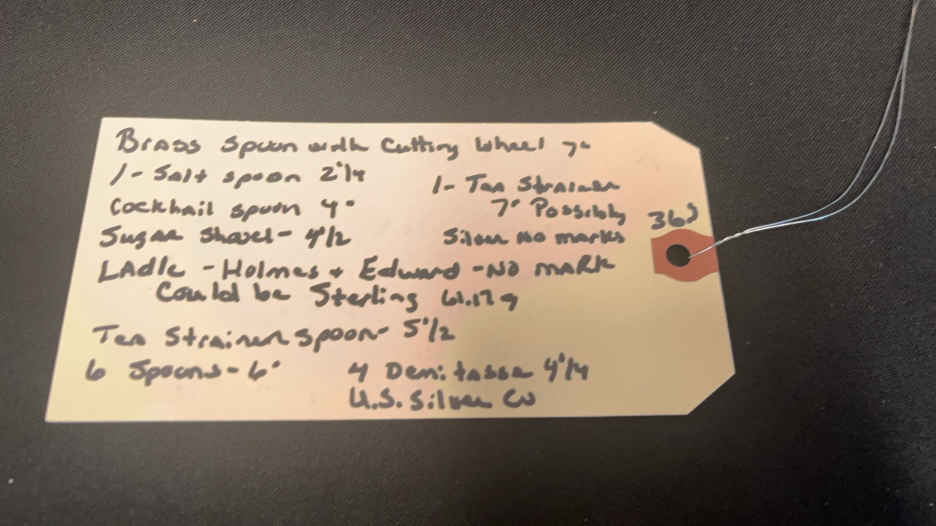 Brass Spoon with Cutting Wheel 7"
1- Salt spoon 2"1/4
1- Tea Strainer
Cocktail spoon 4"
7" Possibly
Sugar Shovel- 4"1/2
Silver No marks
LAdle - Holmes + Edward - No mARK
Could be Sterling 61.17g
Tea Strainer spoon- 5"1/2
6 Spoons- 6"
4 Demitasse 4"1/4
U.S. Silver Co